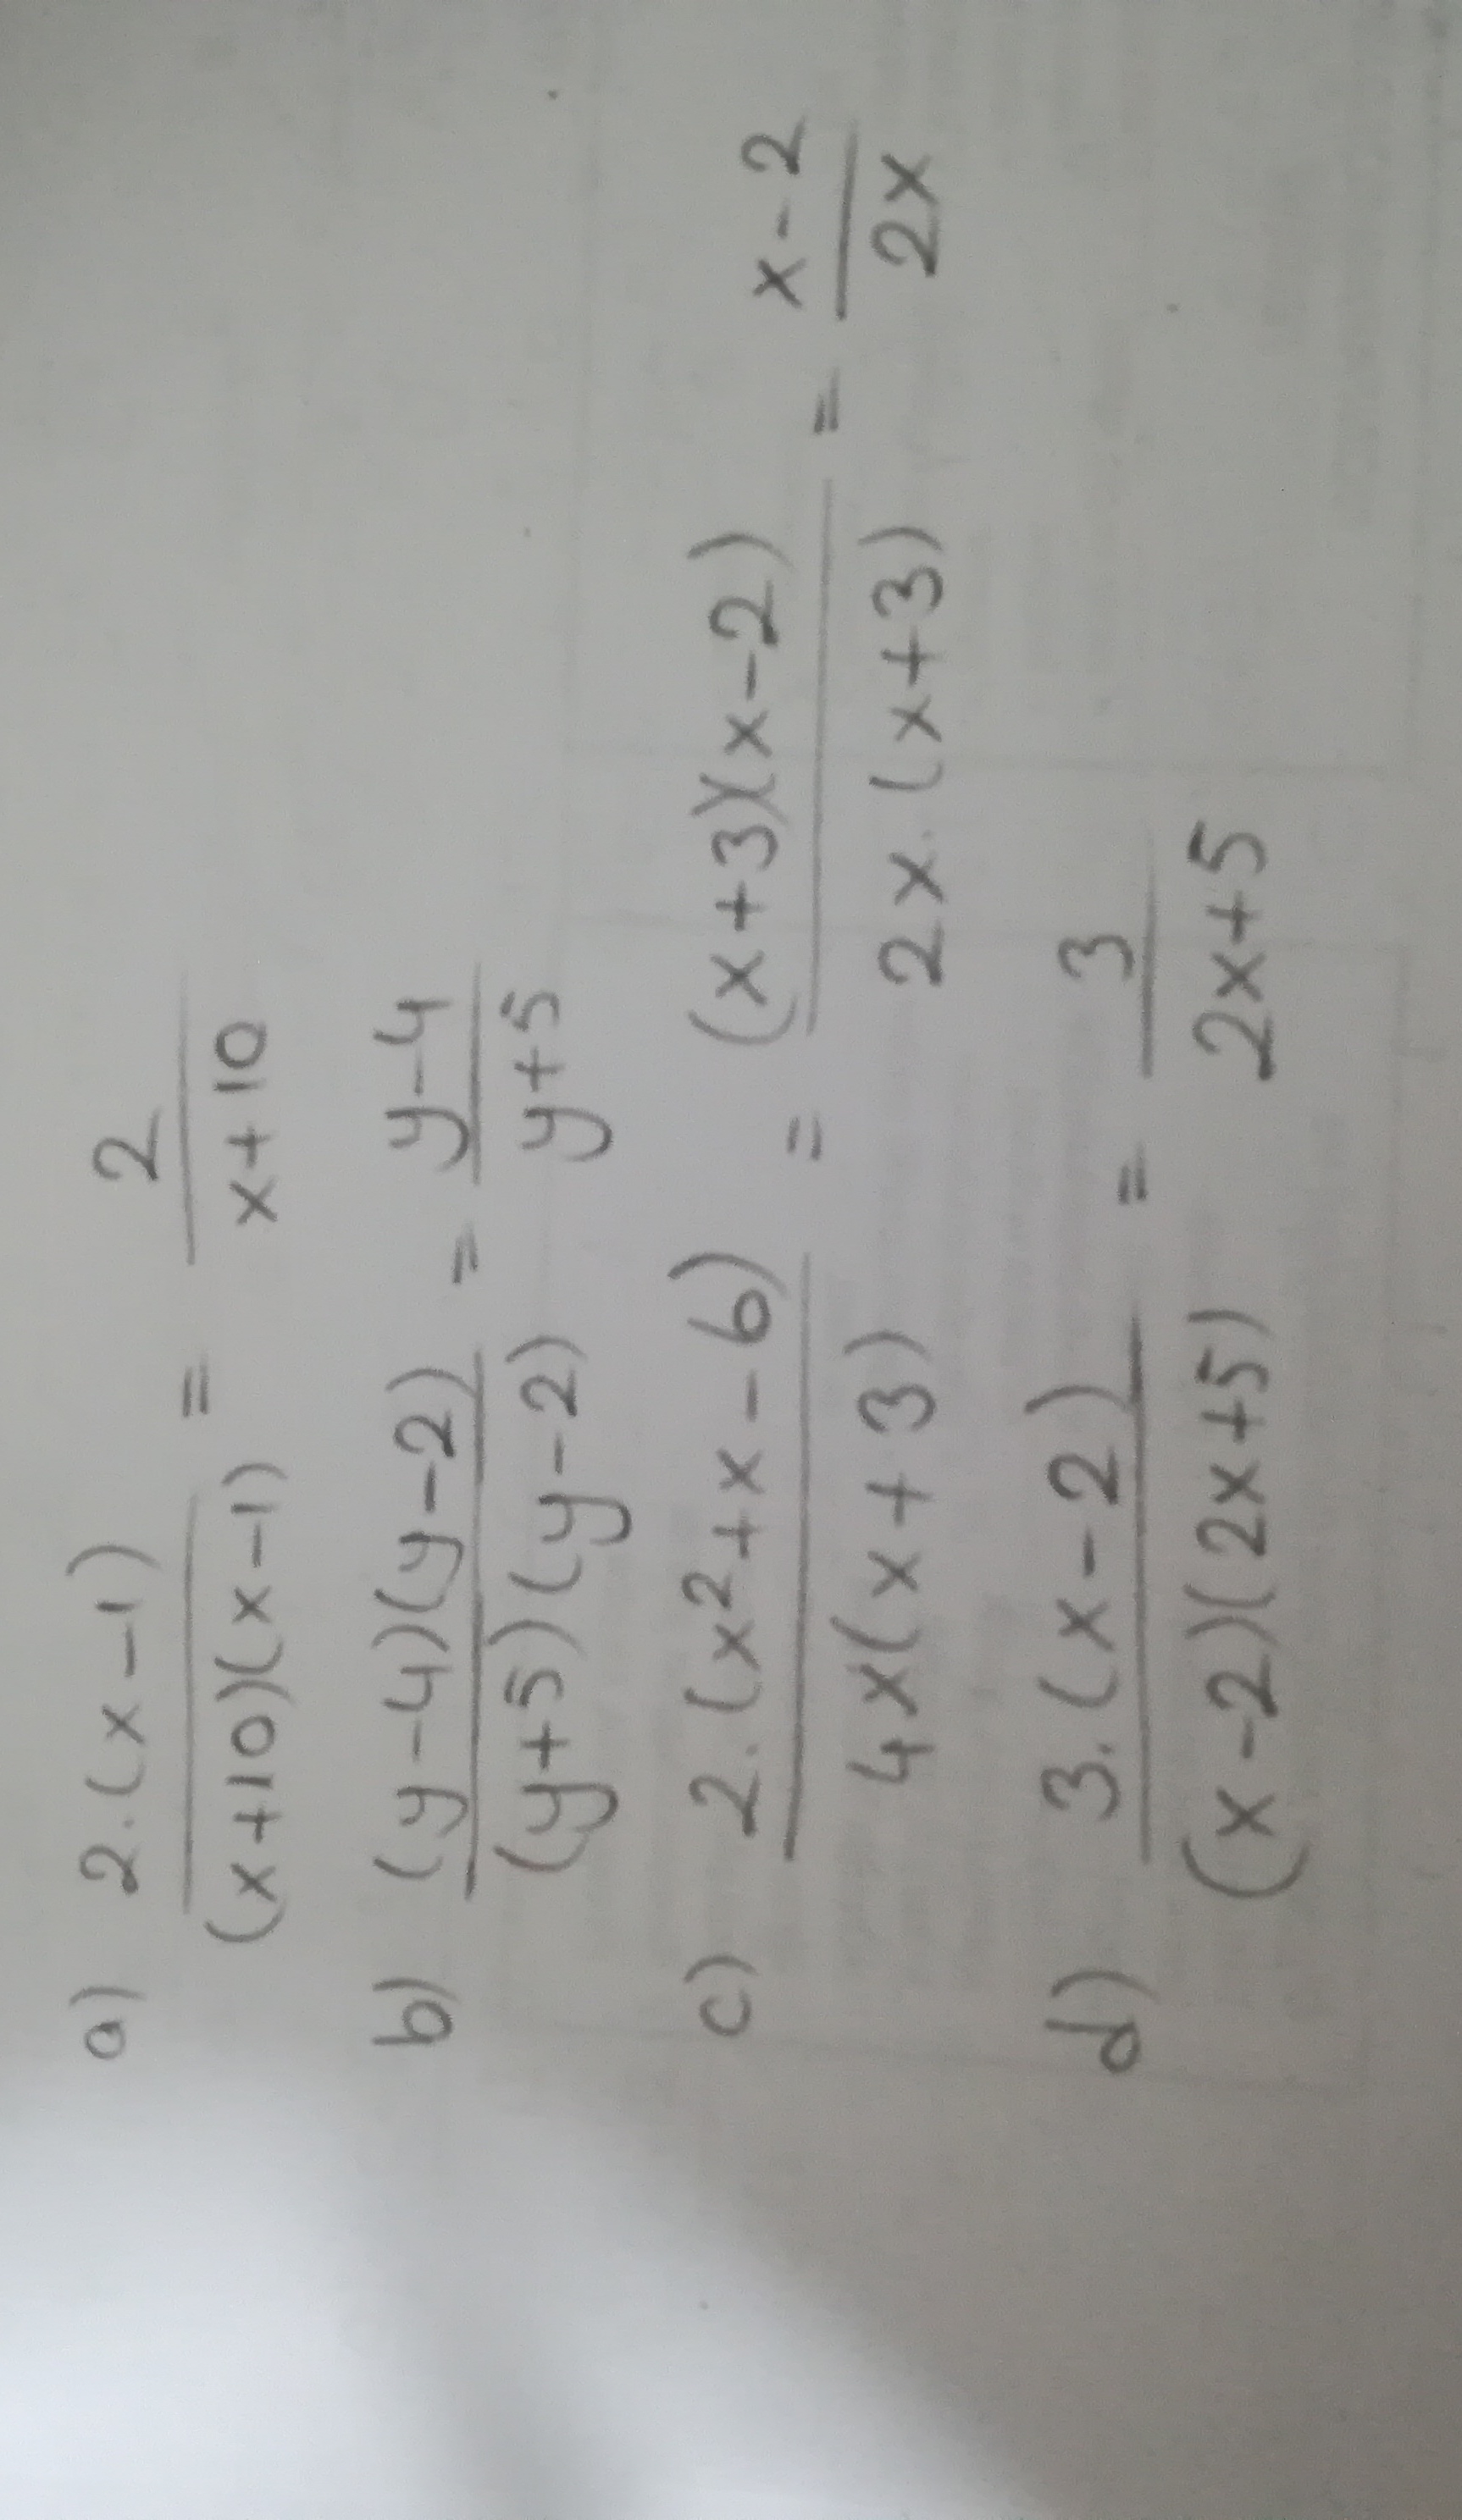 a) 2.(x-1) / (x+10)(x-1) = 2 / x+10
b) (y-4)(y-2) / (y+5)(y-2) = y-4 / y+5
c) 2.(x²+x-6) / 4x(x+3) = (x+3)(x-2) / 2x.(x+3) = x-2 / 2x
d) 3.(x-2) / (x-2)(2x+5) = 3 / 2x+5